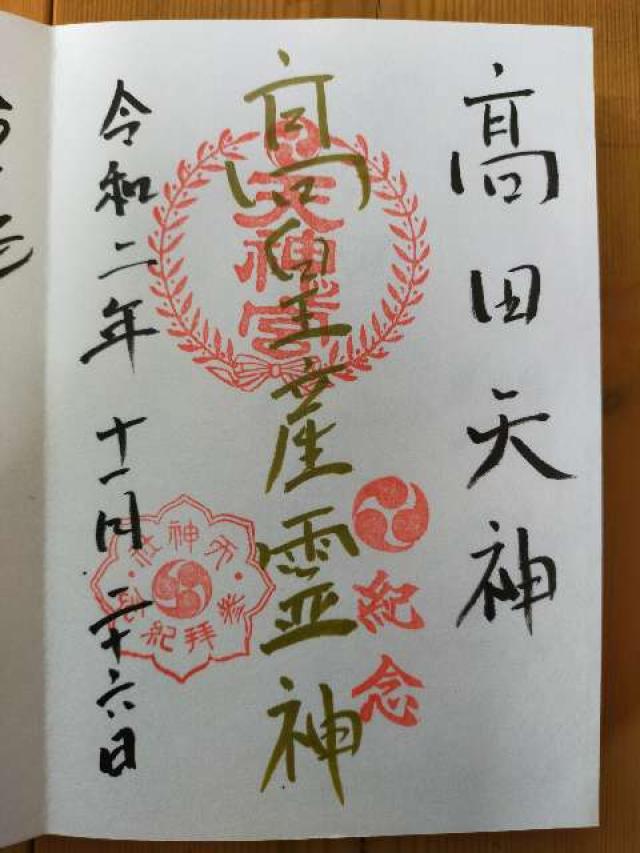 高田天神
高皇産霊神
天神宮
紀念
令和二年 十一月 二十六日